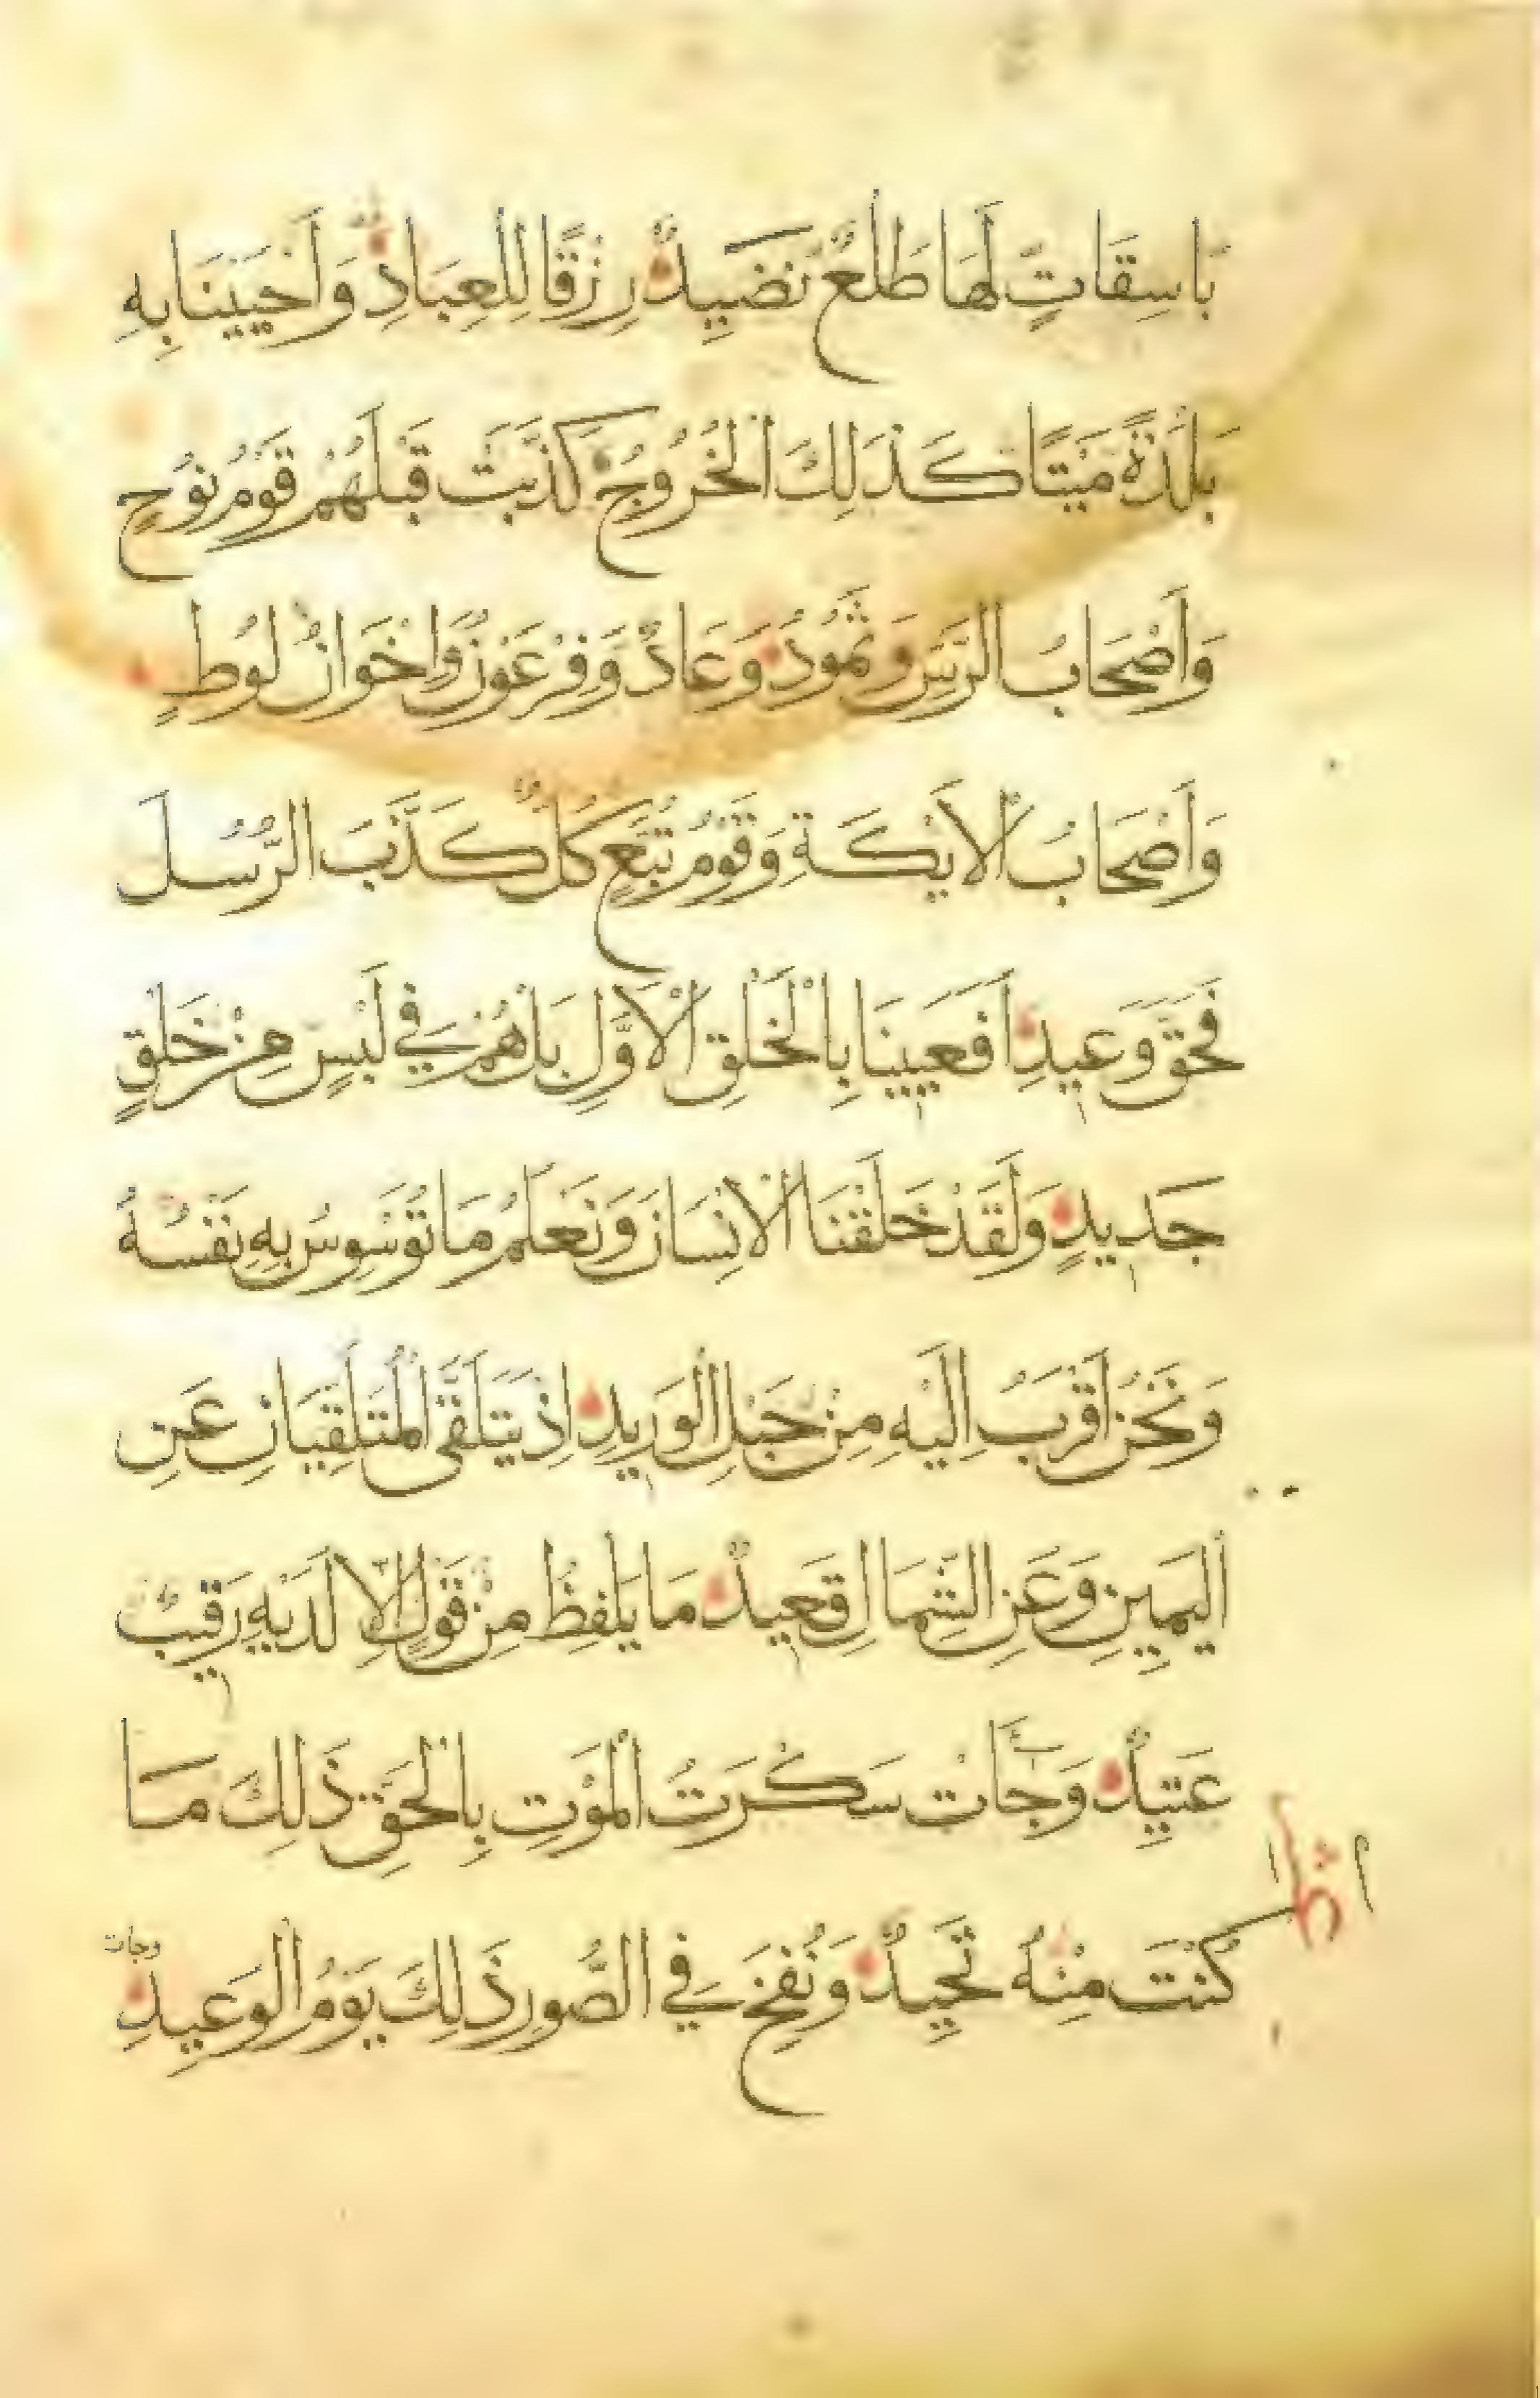 بَاسِقَاتٍ لَهَا طَلْعٌ نَضِيدٌ رِزْقًا لِلْعِبَادِ وَأَحْيَيْنَا بِهِ
بَلْدَةً مَيْتًا كَذَلِكَ الْخُرُوجُ كَذَّبَتْ قَبْلَهُمْ قَوْمُ نُوْحٍ
وَأَصْحَابُ الرَّسِّ وَثَمُودُ وَعَادٌ وَفِرْعَوْنُ وَاِخْوَانُ لُوطٍ
وَأَصْحَابُ الْأَيْكَةِ وَقَوْمُ تُبَّعٍ كُلٌّ كَذَّبَ الرُّسُلَ
فَحَقَّ وَعِيدِ أَفَعَيِينَا بِالْخَلْقِ الْأَوَّلِ بَلْ هُمْ فِي لَبْسٍ مِنْ خَلْقٍ
جَدِيدٍ وَلَقَدْ خَلَقْنَا الْاِنْسَانَ وَنَعْلَمُ مَا تُوَسْوِسُ بِهِ نَفْسُهُ
وَنَحْنُ أَقْرَبُ اِلَيْهِ مِنْ حَبْلِ الْوَرِيدِ اِذْ يَتَلَقَّى الْمُتَلَقِّيَانِ عَنِ
الْيَمِينِ وَعَنِ الشِّمَالِ قَعِيدٌ مَا يَلْفِظُ مِنْ قَوْلٍ اِلَّا لَدَيْهِ رَقِيبٌ
عَتِيدٌ وَجَأَتْ سَكْرَتُ الْمَوْتِ بِالْحَقِّ ذَلِكَ مَا
كُنْتَ مِنْهُ تَحِيدُ وَنُفِخَ فِي الصُّورِ ذَلِكَ يَوْمُ الْوَعِيدِ
وجأت